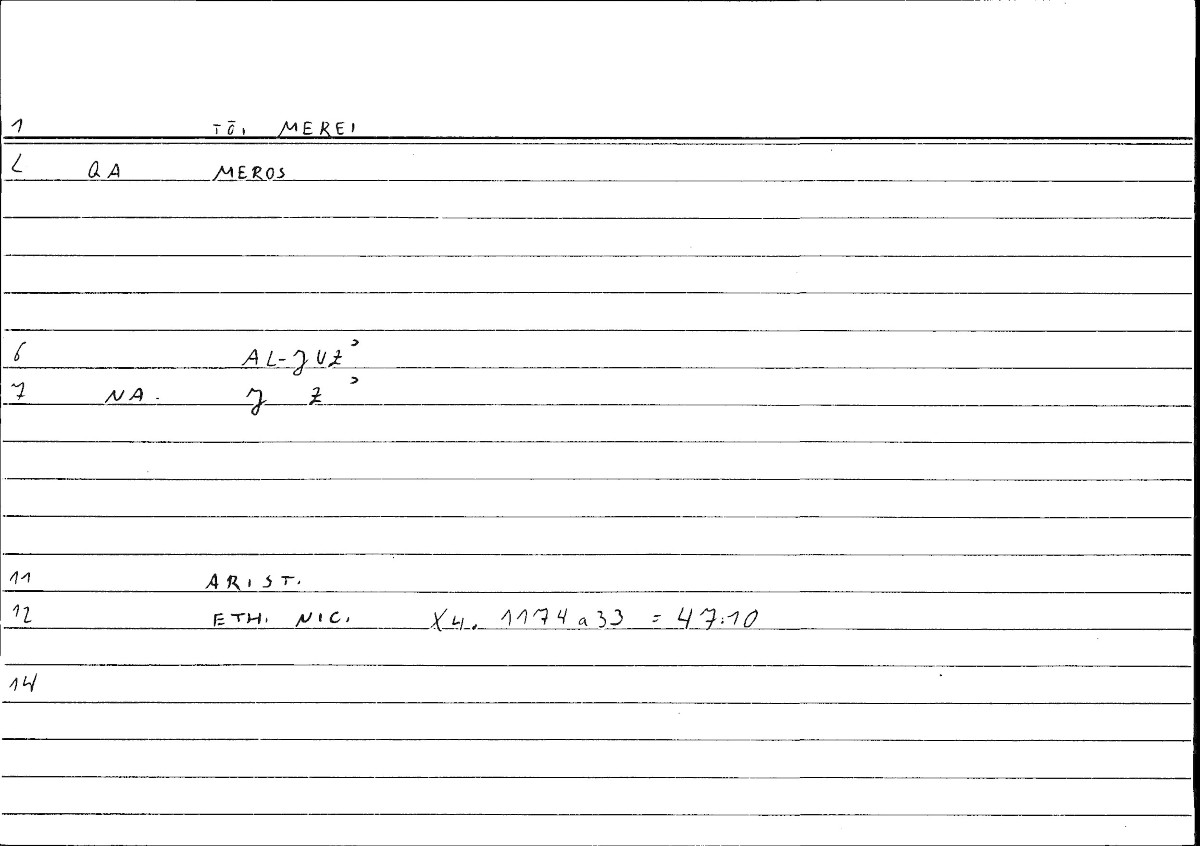 1 TŌI MEREI
2 QA MEROS
6 AL-ǦUZʾ
7 NA. Ǧ Z ʾ
11 ARIST.
12 ETH. NIC. X4. 1174a33 = 47.10
14